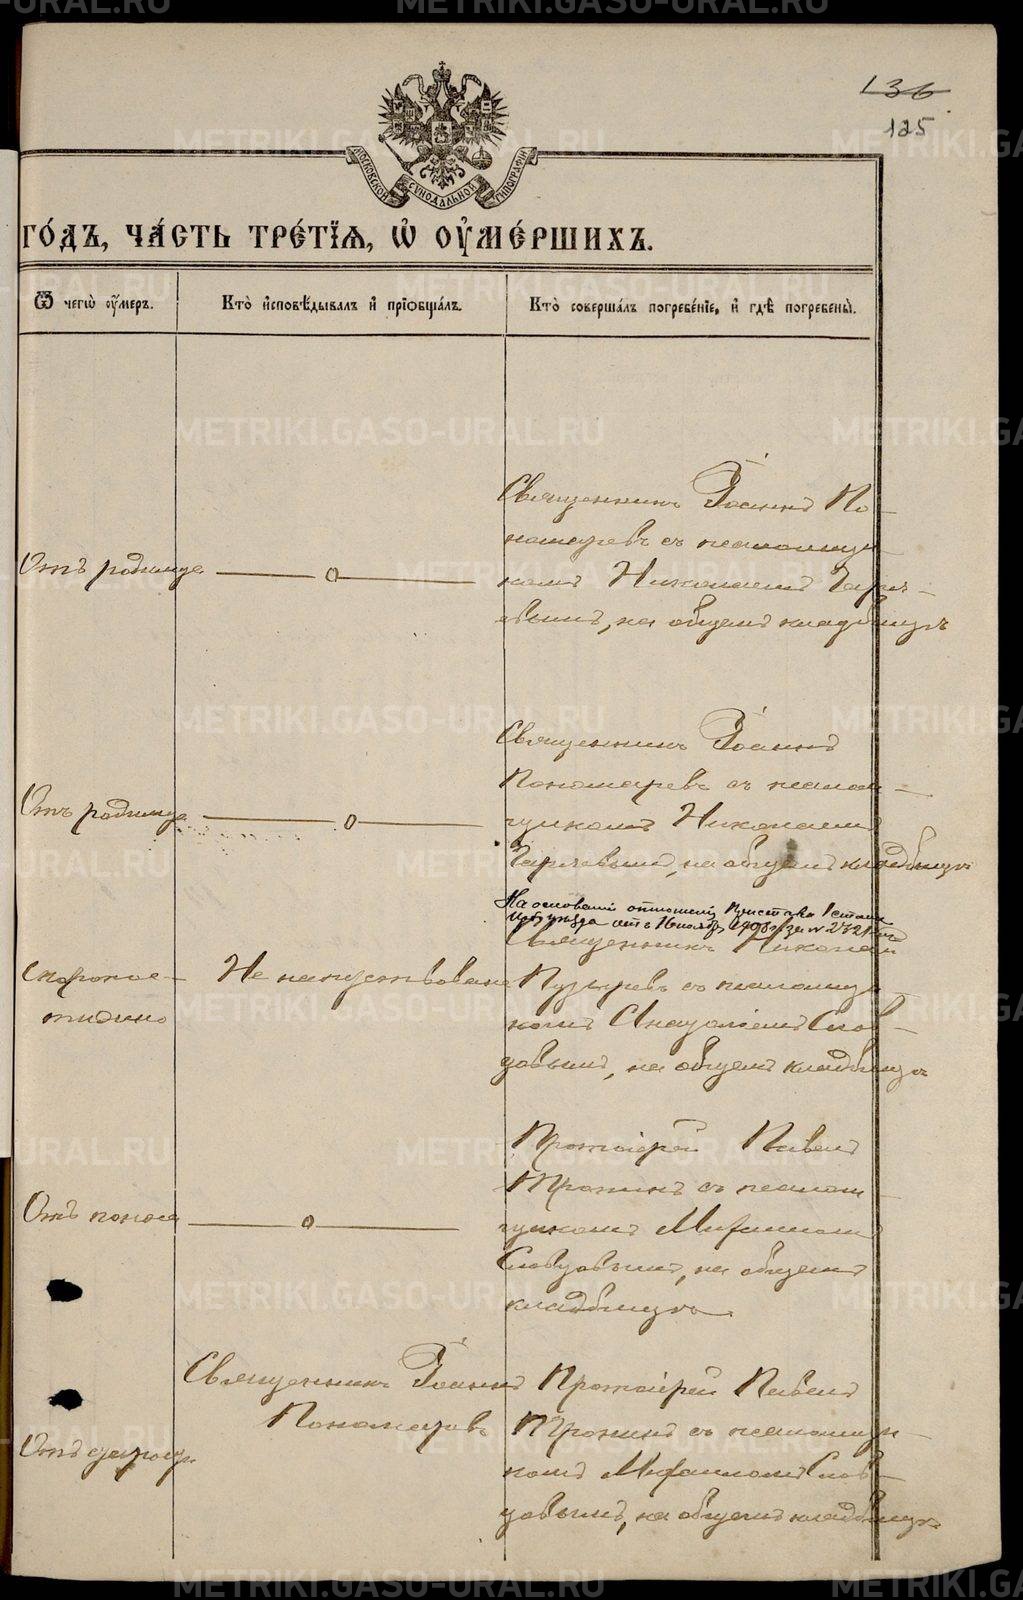 136
125
МОСКОВСКОЙ СѴНОДАЛЬНОЙ ТИПОГРАФІИ
ГО́ДЪ, ЧА́СТЬ ТРЕ́ТЇѦ, Ѡ҆ ОУ҆МЕ́РШИХЪ.
Ѿ чегѡ̀ оу҆́меръ.
Кто̀ и҆сповѣ́дывалъ и҆ прїѡбща́лъ.
Кто̀ соверша́лъ погребе́нїе, и҆ гдѣ̀ погребены̀.
Отъ родимца
—o—
Священникъ Іоаннъ По-
номаревъ съ псаломщи-
комъ Николаемъ
на общемъ кладбищѣ
Отъ родимца
—o—
Священникъ Іоаннъ
Пономаревъ съ псалом-
щикомъ Николаемъ
на общемъ кладбищѣ
Скоропос-
тижно
Не напутствована
На основаніи отношенія Пристава 1 стана
уѣзда отъ 16 ноября 1908 г. за № 2321
Священникъ Николай
Пузыревъ съ псаломщи-
комъ Анатоліемъ Слов-
цовымъ, на общемъ кладбищѣ
Отъ поноса
—o—
Протоіерей Павелъ
Тронинъ съ псалом-
щикомъ Михаиломъ
Словцовымъ, на общемъ
кладбищѣ.
Отъ
Священникъ Іоаннъ
Пономаревъ
Протоіерей Павелъ
Тронинъ съ псаломщи-
комъ Михаиломъ Слов-
цовымъ, на общемъ кладбищѣ
METRIKI.GASO-URAL.RU